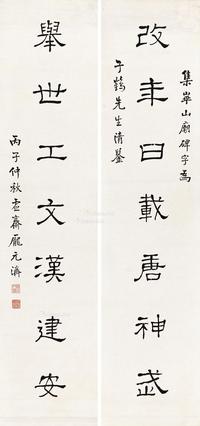 集崋山廟碑字爲
于鶴先生清鑒
改年曰載唐神武
舉世工文漢建安
丙子仲秋虛齋龐元濟